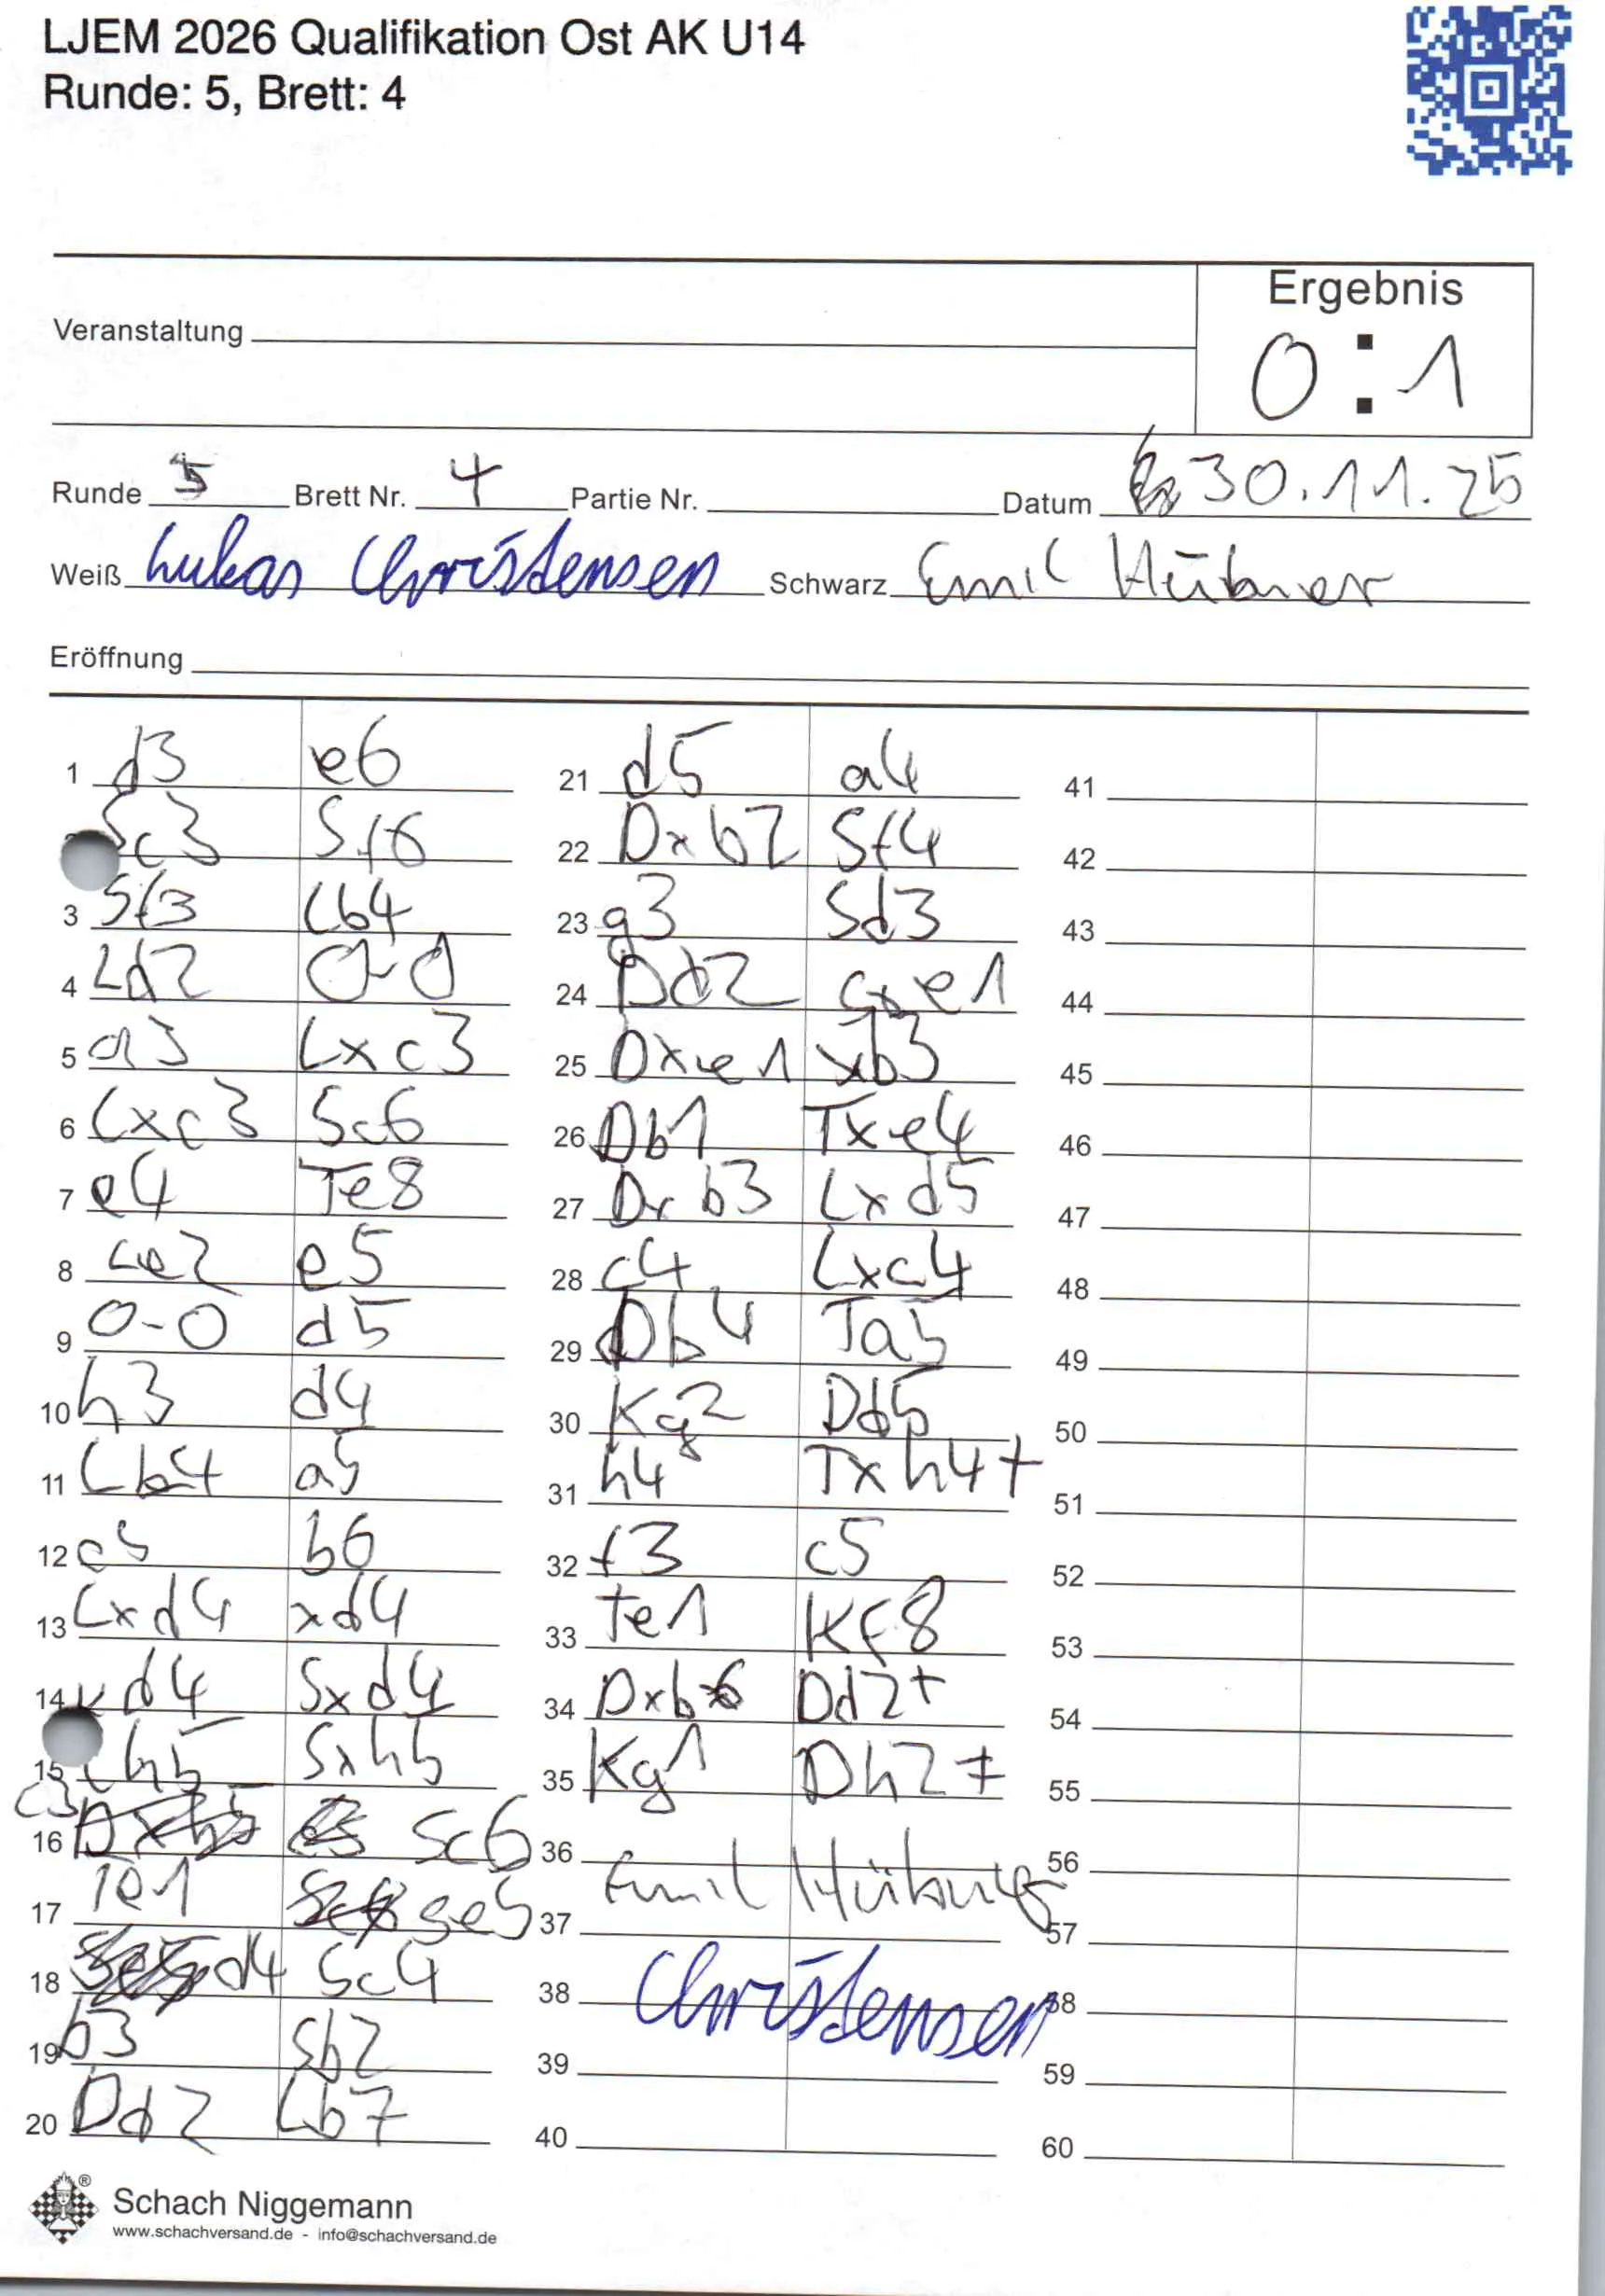 LJEM 2026 Qualifikation Ost AK U14
Runde: 5, Brett: 4
Ergebnis
0 : 1
Veranstaltung
Runde 5 Brett Nr. 4 Partie Nr. Datum 30.11.25
Weiß Lukas Christensen Schwarz Emil Hübner
Eröffnung
1 d3 e6
Sc3 Sf6
3 Sf3 Lb4
4 Ld2 0-0
5 a3 Lxc3
6 Lxc3 Sc6
7 e4 Te8
8 Le2 e5
9 0-0 d5
10 h3 d4
11 Lb4 a5
12 c5 b6
13 Lxd4 xd4
14 xd4 Sxd4
15 Lh5 Sxh5
16 c3 Sc6
17 Te1 Se5
18 d4 Sc4
19 b3 Sb2
20 Dd2 Lb7
21 d5 a4
22 Dxb2 Sf4
23 g3 Sd3
24 Dd2 Sxe1
25 Dxe1 xb3
26 Db1 Txe4
27 Dxb3 Lxd5
28 c4 Lxc4
29 Db4 Ta5
30 Kg2 Dd5
31 h4 Txh4+
32 f3 c5
33 Te1 Kf8
34 Dxb6 Dd2+
35 Kg1 Dh2‡
36 Emil Hübner
37
38 Christensen
39
40
41
42
43
44
45
46
47
48
49
50
51
52
53
54
55
56
57
58
59
60
Schach Niggemann ®
www.schachversand.de - info@schachversand.de